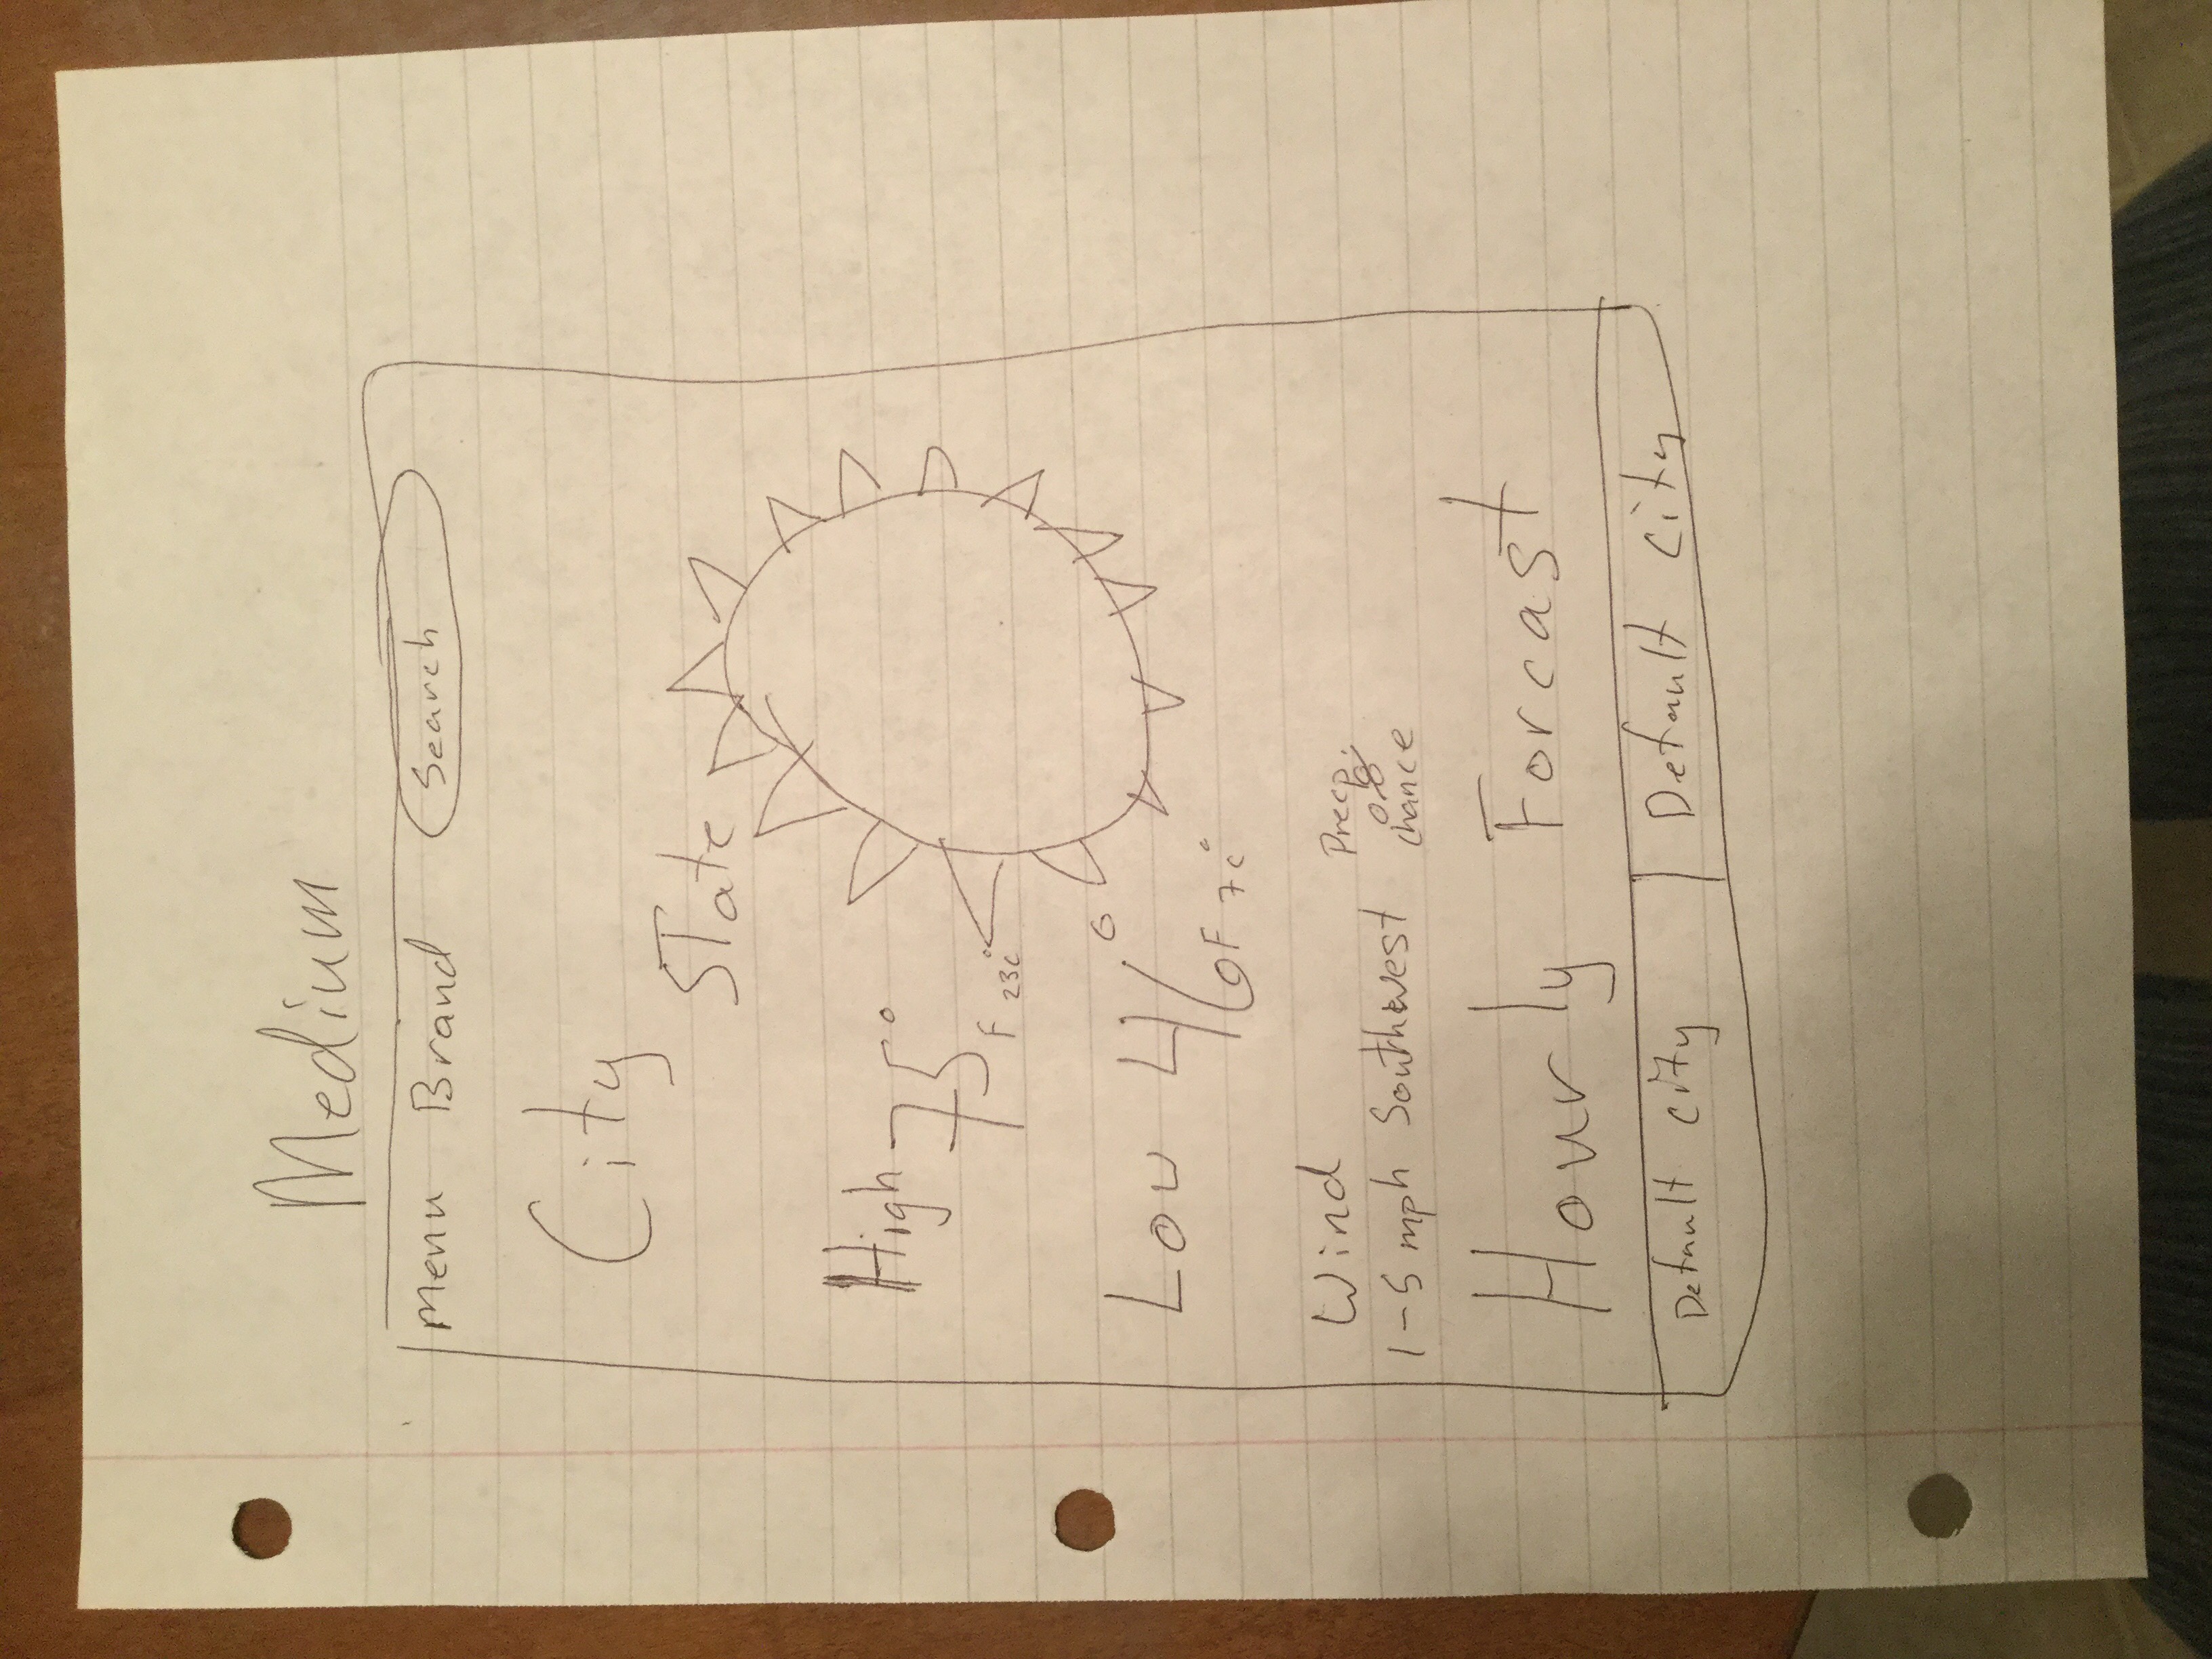 Medium
Menu Brand Search
City State
High 75° F 23c°
Low 46° F 7c°
Wind Precip.
1-5 mph Southwest chance
Hourly Forcast
Default city Default city